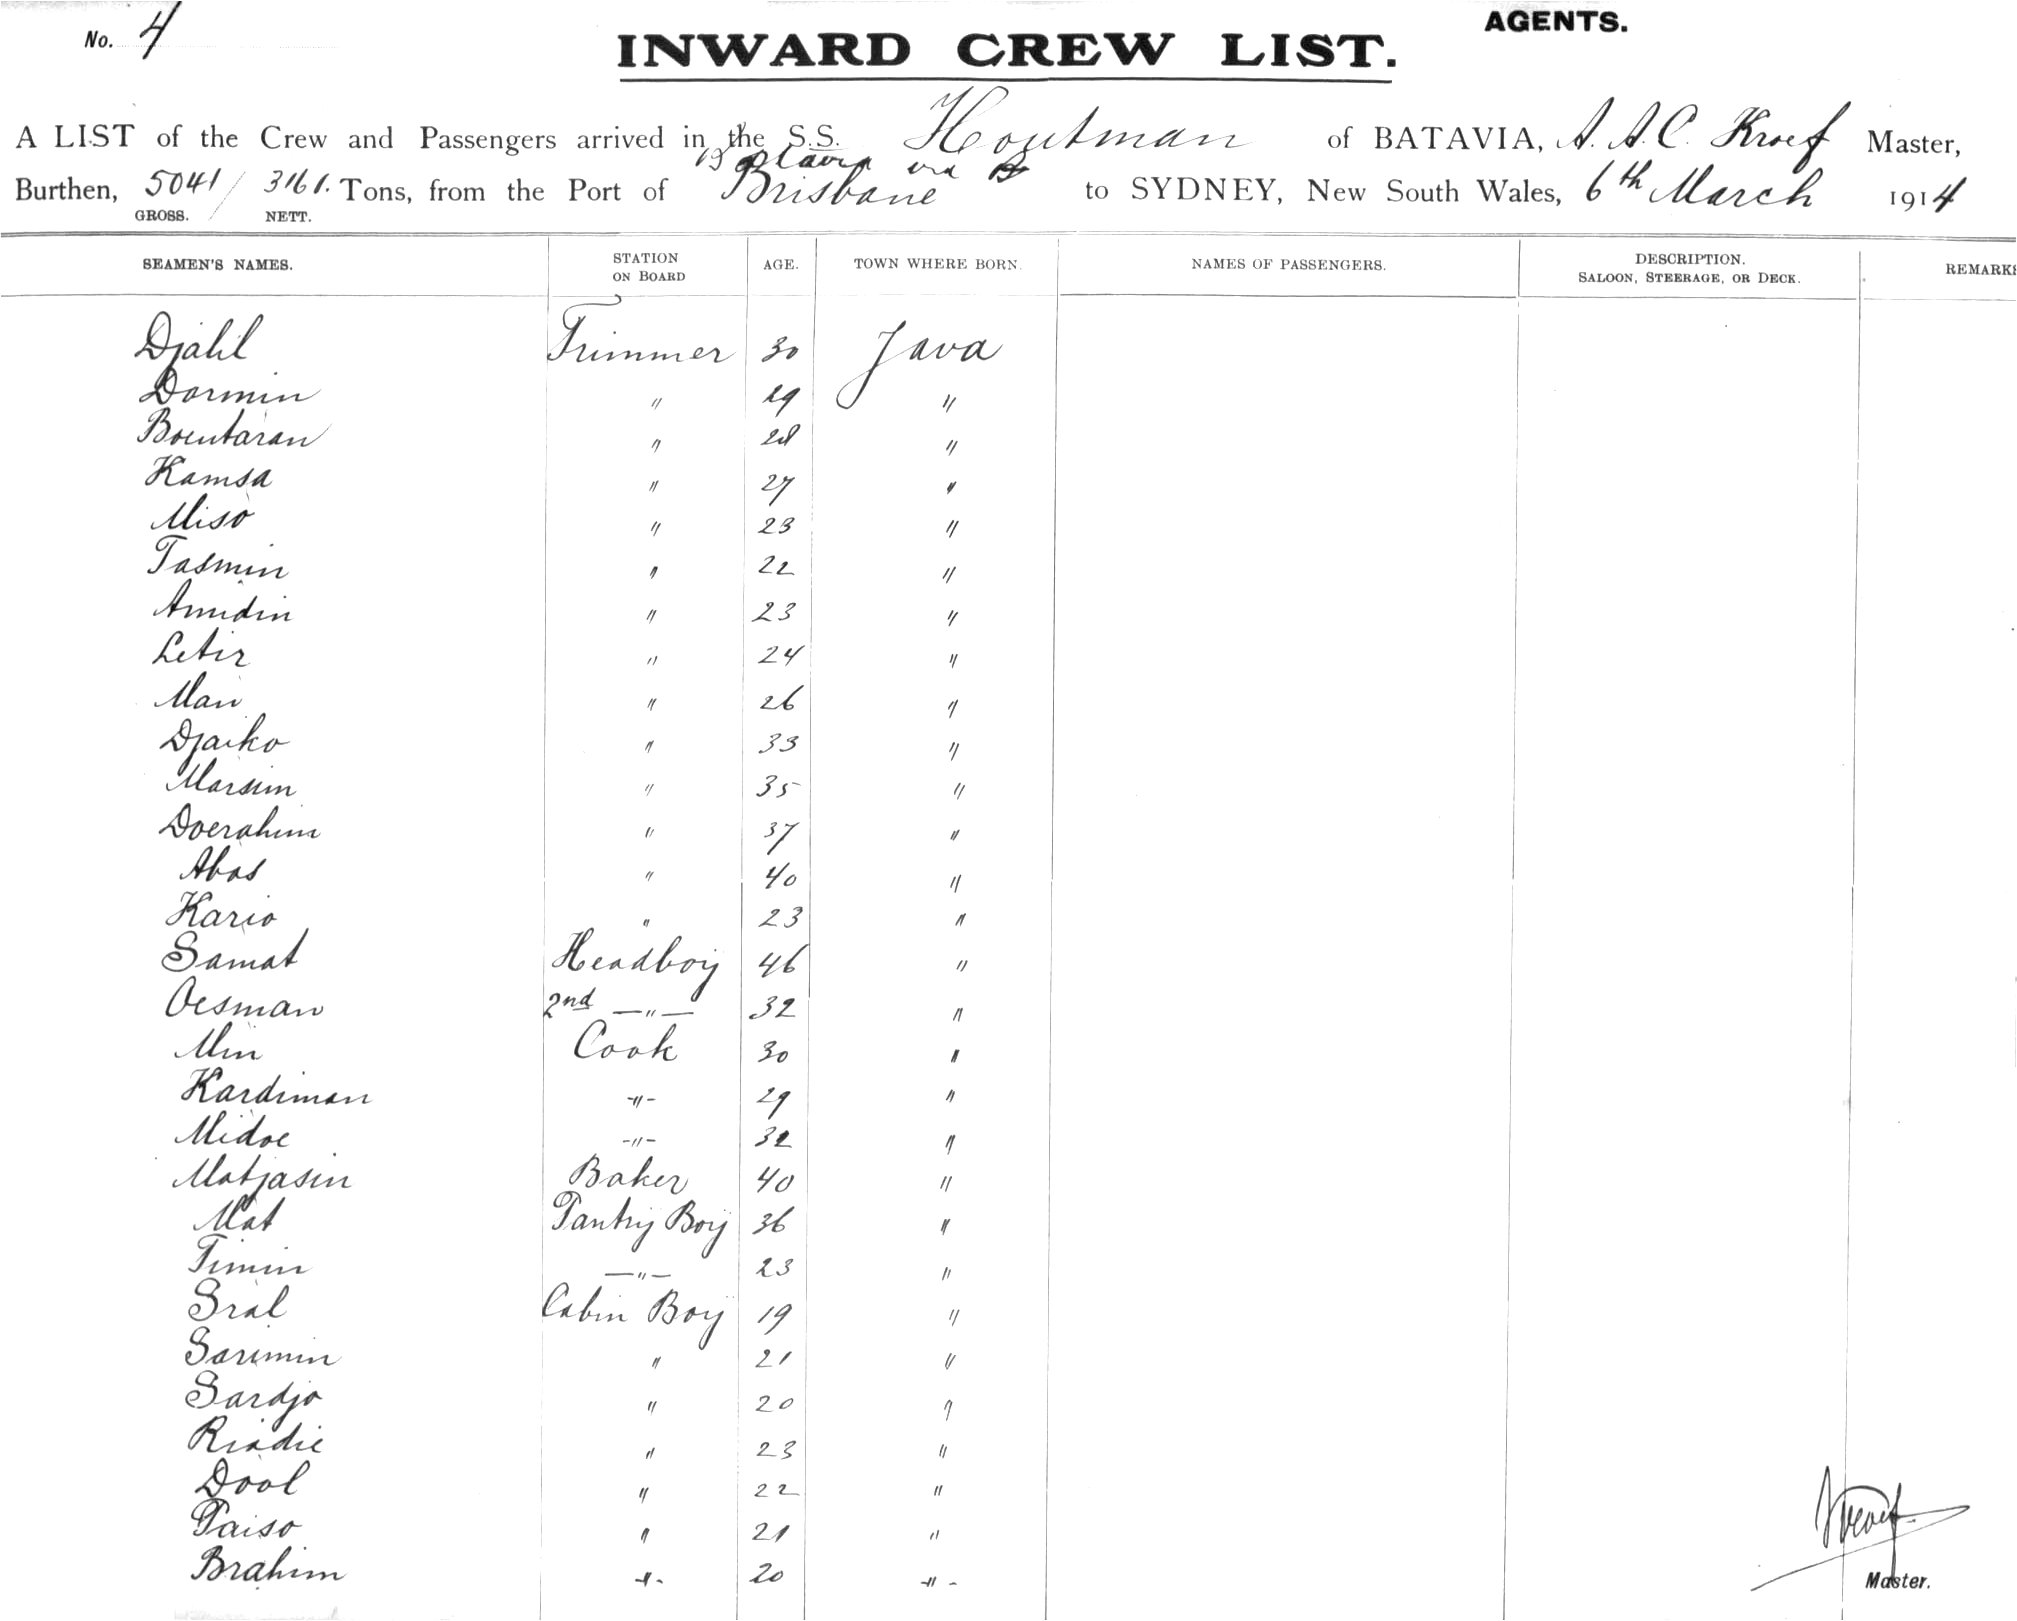 AGENTS.
No. 4
INWARD CREW LIST.
A LIST of the Crew and Passengers arrived in the S.S. Houtman of BATAVIA, A. A. C. Kroef Master,
Batavia via
Burthen, 5041 / 3161. Tons, from the Port of Brisbane to SYDNEY, New South Wales, 6th March 1914
GROSS. NETT.
SEAMEN'S NAMES. STATION ON BOARD AGE. TOWN WHERE BORN. NAMES OF PASSENGERS. DESCRIPTION. SALOON, STEERAGE, OR DECK. REMARKS
Djalil Trimmer 30 Java
Dormin " 29 "
Boentaran " 28 "
Kamsa " 27 "
Miso " 23 "
Tasmin " 22 "
Amidin " 23 "
Letir " 24 "
Man " 26 "
Djaiko " 33 "
Marsim " 35 "
Doerahim " 37 "
Abas " 40 "
Kario " 23 "
Samat Headboy 46 "
Oesman 2nd —"— 32 "
Min Cook 30 "
Kardiman -"- 29 "
Midoe -"- 32 "
Matjasin Baker 40 "
Mat Pantry Boy 36 "
Timin —"— 23 "
Sral Cabin Boy 19 "
Sarimin " 21 "
Sardjo " 20 "
Riadie " 23 "
Dool " 22 "
Paiso " 21 "
Brahim -"- 20 -"-
Kroef.
Master.